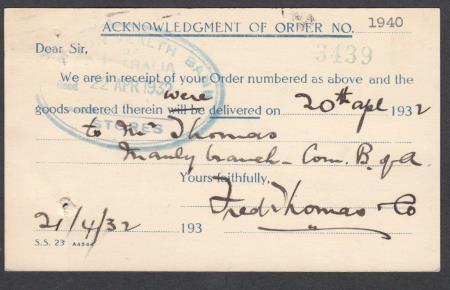 ACKNOWLEDGMENT OF ORDER NO. 1940
Dear Sir,
3439
We are in receipt of your Order numbered as above and the
goods ordered therein will be were delivered on 20th apl 1932
to Mr Thomas
Manly branch - Com. B. of A.
Yours faithfully,
Fred Thomas & Co
21/4/32 193
S.S. 23 A4544
22 APR 1932
STORES